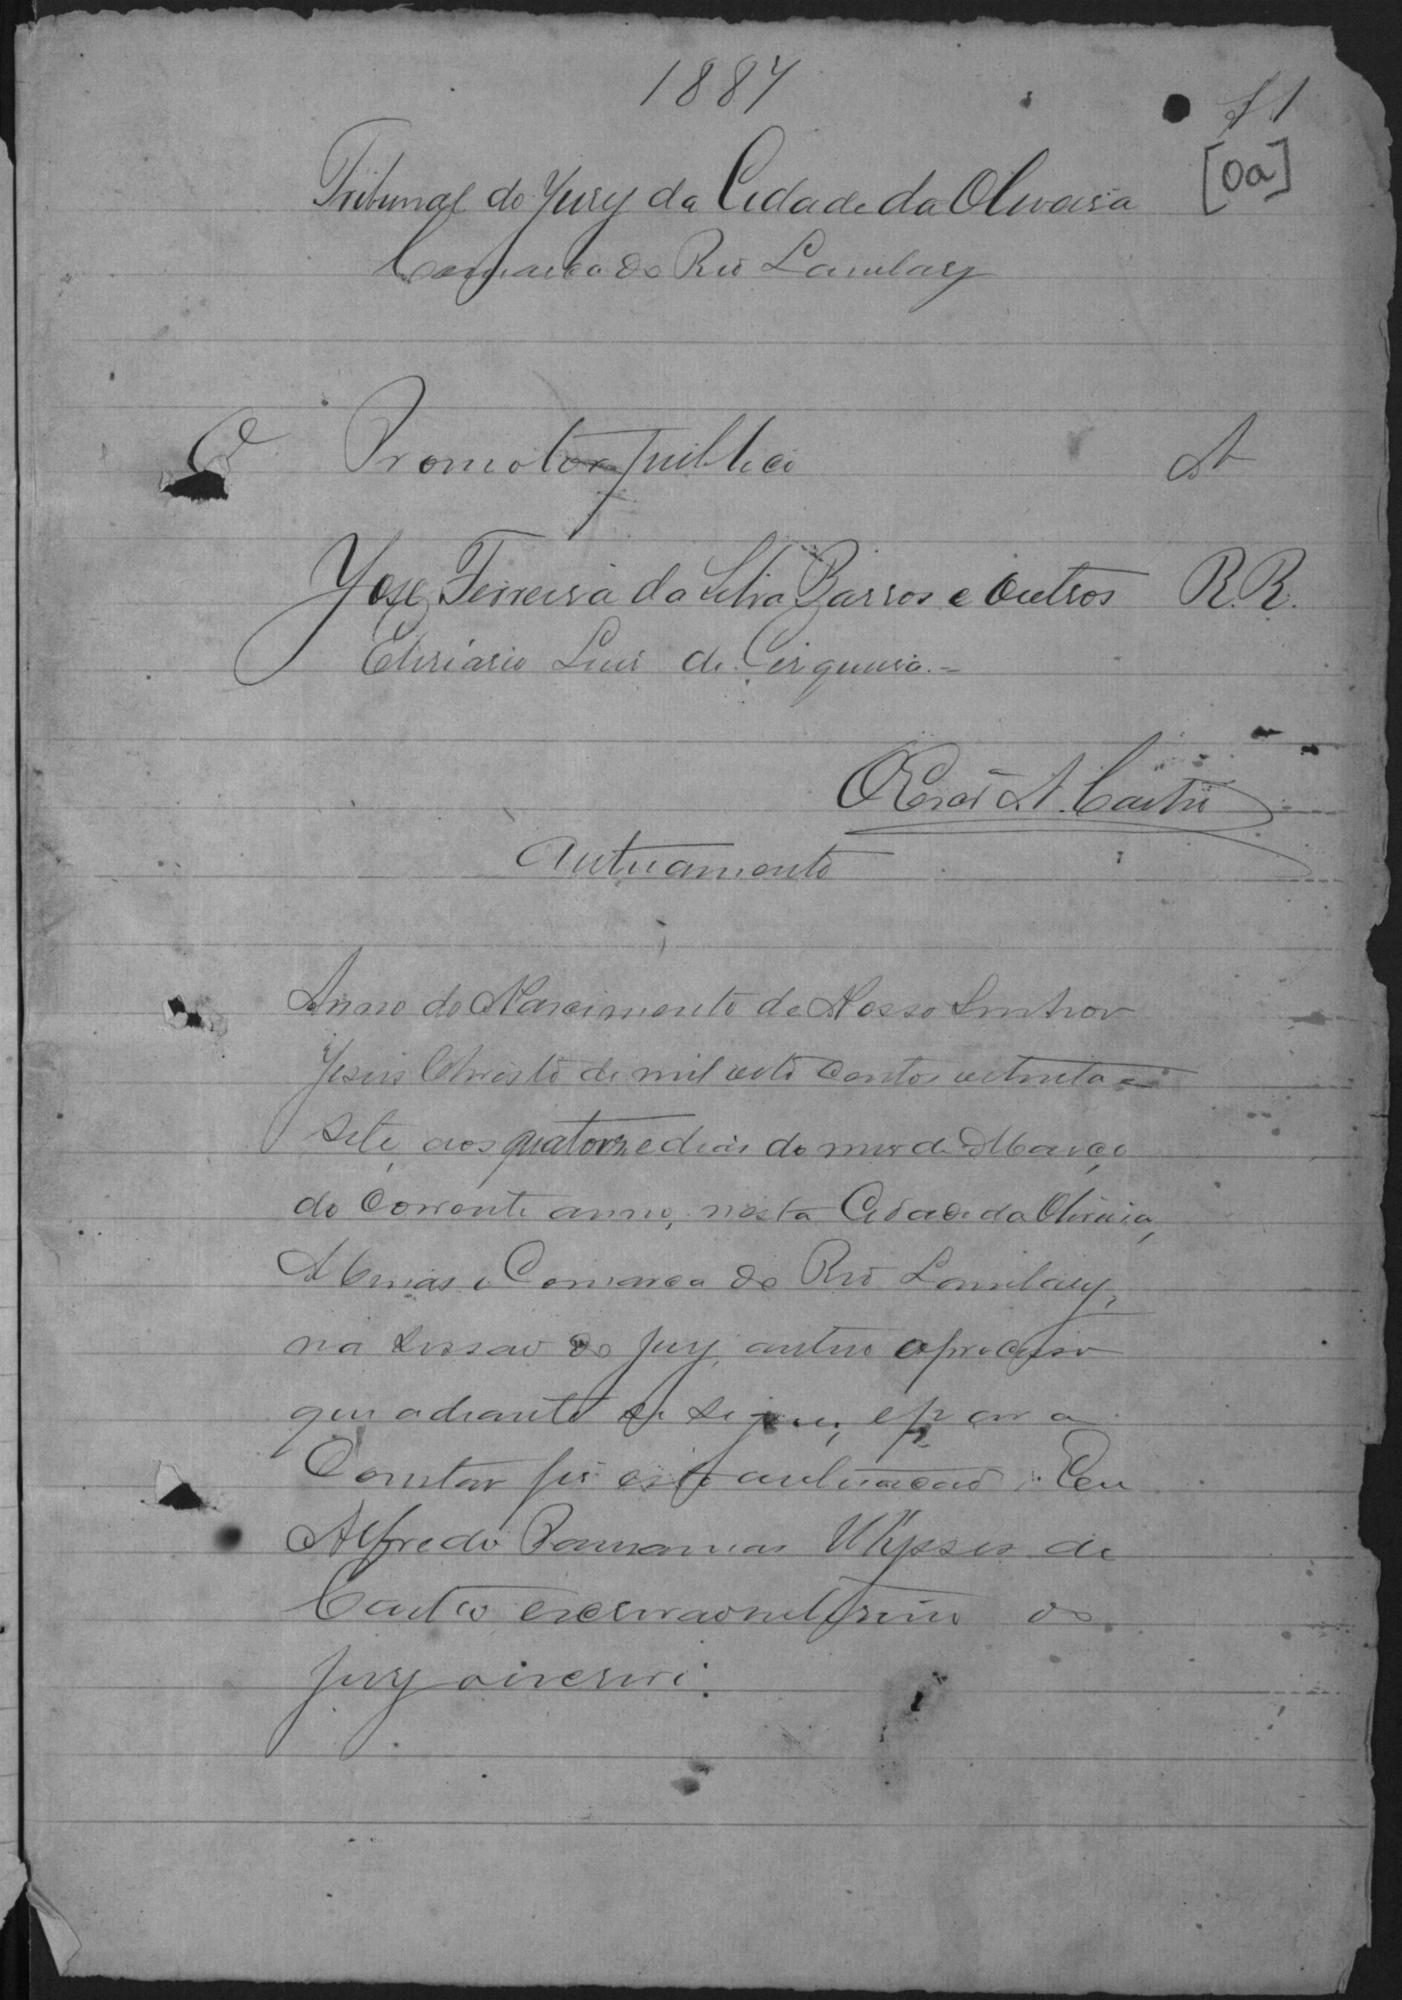 1887
f 1
[0a]
Tribunal do Jury da Cidade da Oliveira
Comarca do Rio Lambary
O Promotor publico A
José Ferreira da Silva Barros e outros R.R.
Luis de Cirqueira. =
A. Castro
Autuamento
Anno do Nascimento de Nosso Senhor
Jesus Christo de mil oito centos oitenta e
sete, aos quatorze dias do mes de Março
do corrente anno, nesta Cidade da Oliveira,
Minas e Comarca do Rio Lambary,
na sessao do jury, autuo o processo
que adiante se segue; e para
Constar fis esta autuacao. Eu
Alfredo Ulysses de
Castro escrivao interino do
jury o iscrivi.